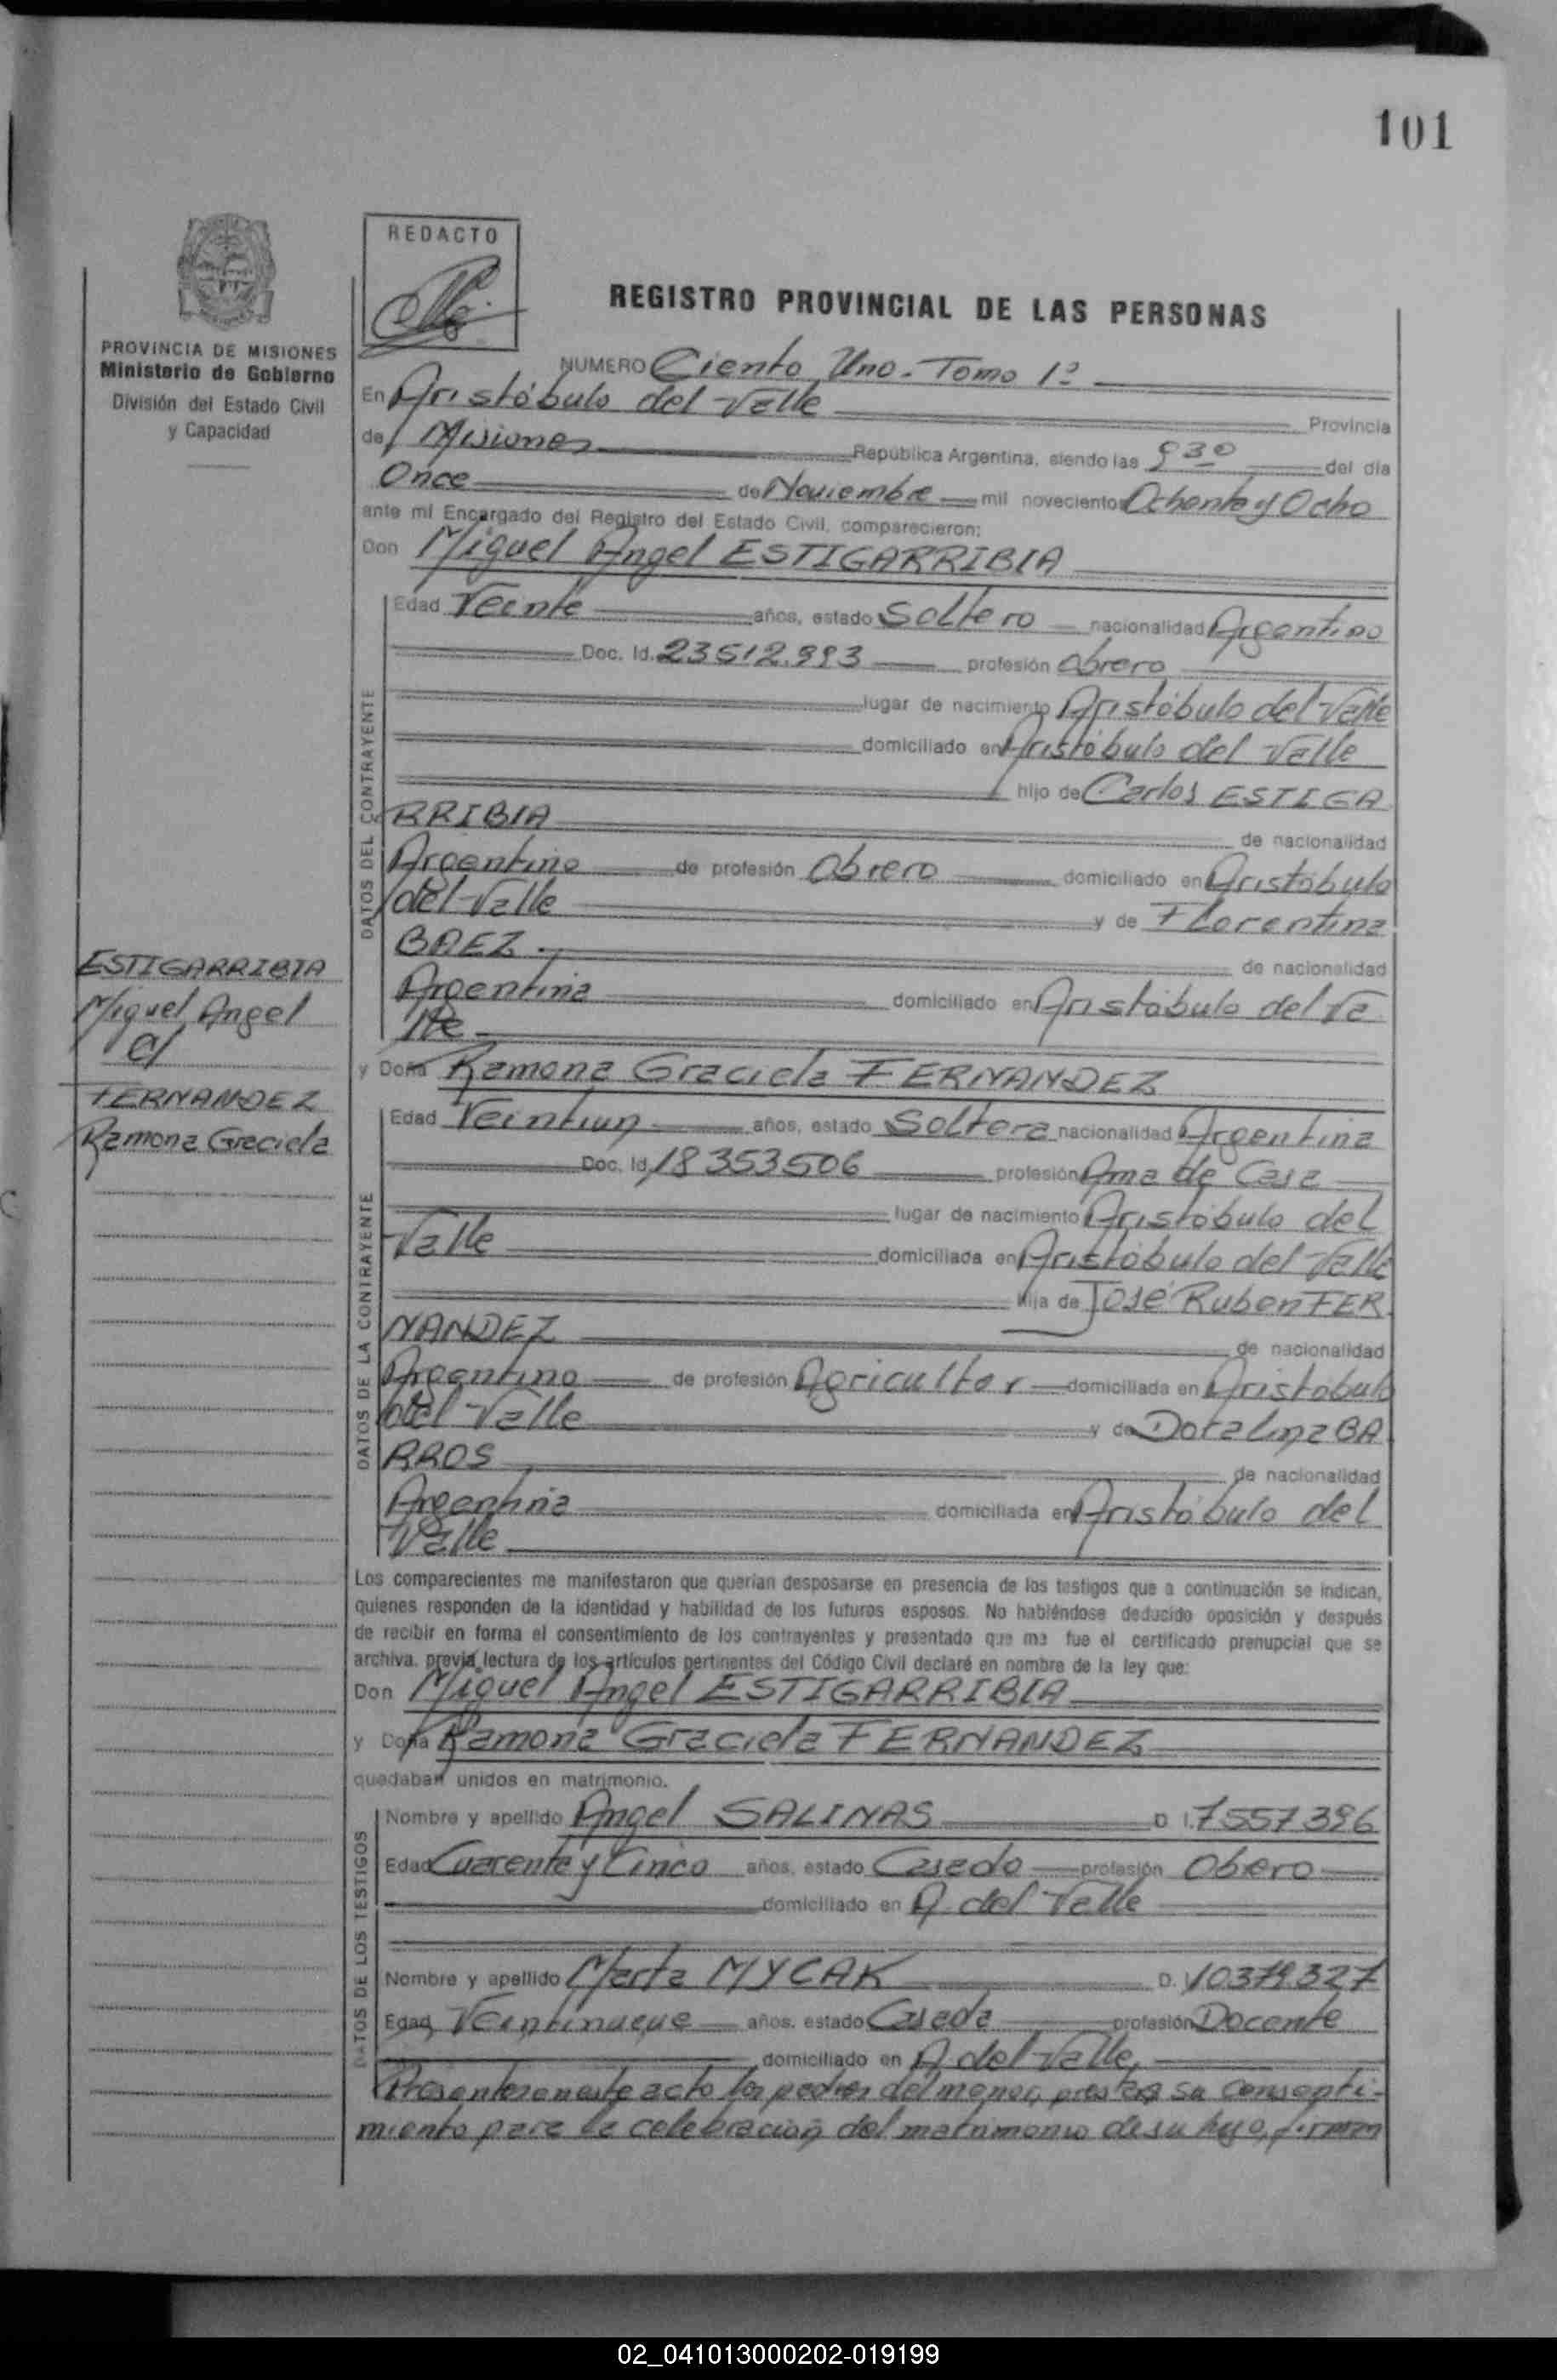 101
REDACTO
REGISTRO PROVINCIAL DE LAS PERSONAS
PROVINCIA DE MISIONES
Ministerio de Gobierno
División del Estado Civil
y Capacidad
NUMERO Ciento Uno. Tomo 1º
En Aristóbulo del Valle Provincia
de Misiones República Argentina, siendo las del día
Once de Noviembre mil novecientos Ochenta y Ocho
ante mi Encargado del Registro del Estado Civil, comparecieron:
Don Miguel Angel ESTIGARRIBIA
DATOS DEL CONTRAYENTE
Edad Veinte años, estado Soltero nacionalidad Argentino
Doc. Id. 23512.993 profesión obrero
lugar de nacimiento Aristóbulo del Valle
domiciliado en Aristóbulo del Valle
hijo de Carlos ESTIGA
RRIBIA de nacionalidad
Argentino de profesión Obrero domiciliado en Aristóbulo
del Valle y de Florentina
BAEZ de nacionalidad
Argentina domiciliado en Aristóbulo del Va
lle
ESTIGARRIBIA
Miguel Angel
c/
FERNANDEZ
Ramona Graciela
y Doña Ramona Graciela FERNANDEZ
DATOS DE LA CONTRAYENTE
Edad Veintiun años, estado Soltera nacionalidad Argentina
Doc. Id. 18353506 profesión Ama de Casa
lugar de nacimiento Aristóbulo del
Valle domiciliada en Aristóbulo del Valle
hija de José Ruben FER
NANDEZ de nacionalidad
Argentino de profesión Agricultor domiciliada en Aristobulo
del Valle y de Doralina BA
RROS de nacionalidad
Argentina domiciliada en Aristóbulo del
Valle
Los comparecientes me manifestaron que querían desposarse en presencia de los testigos que a continuación se indican,
quienes responden de la identidad y habilidad de los futuros esposos. No habiéndose deducido oposición y después
de recibir en forma el consentimiento de los contrayentes y presentado que me fue el certificado prenupcial que se
archiva, previa lectura de los artículos pertinentes del Código Civil declaré en nombre de la ley que:
Don Miguel Angel ESTIGARRIBIA
y Doña Ramona Graciela FERNANDEZ
quedaban unidos en matrimonio.
DATOS DE LOS TESTIGOS
Nombre y apellido Angel SALINAS D. I. 7557396
Edad Cuarenta y Cinco años, estado Casado profesión Obrero
domiciliado en A. del Valle
Nombre y apellido Marta MYCAK D. I. 10379.327
Edad Veintinueve años, estado Casada profesión Docente
domiciliado en A del Valle
acto los padres del menor, su consenti-
miento para la celebración del matrimonio de su hijo, firman
02_041013000202-019199